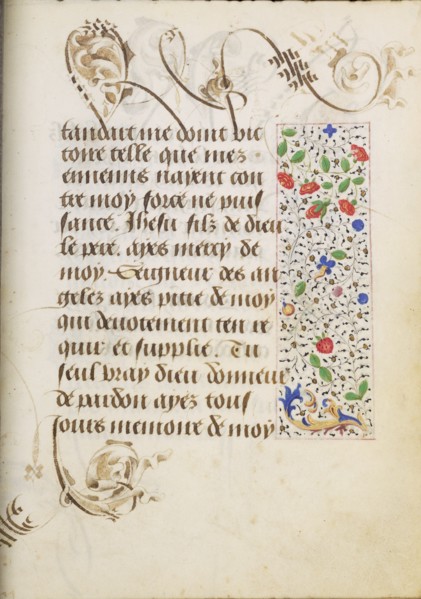 tandart me doint vic
toire telle que mez
ennemis nayent con
tre moy force ne puis
sance. Ihesu filz de dieu
le pere. ayes mercy de
moy. Seigneur des an
gelez ayes pitie de moy
qui deuotement ten re
quier et supplie. Tu
seul vray dieu donneur
de pardon ayez tous
jours memoire de moy